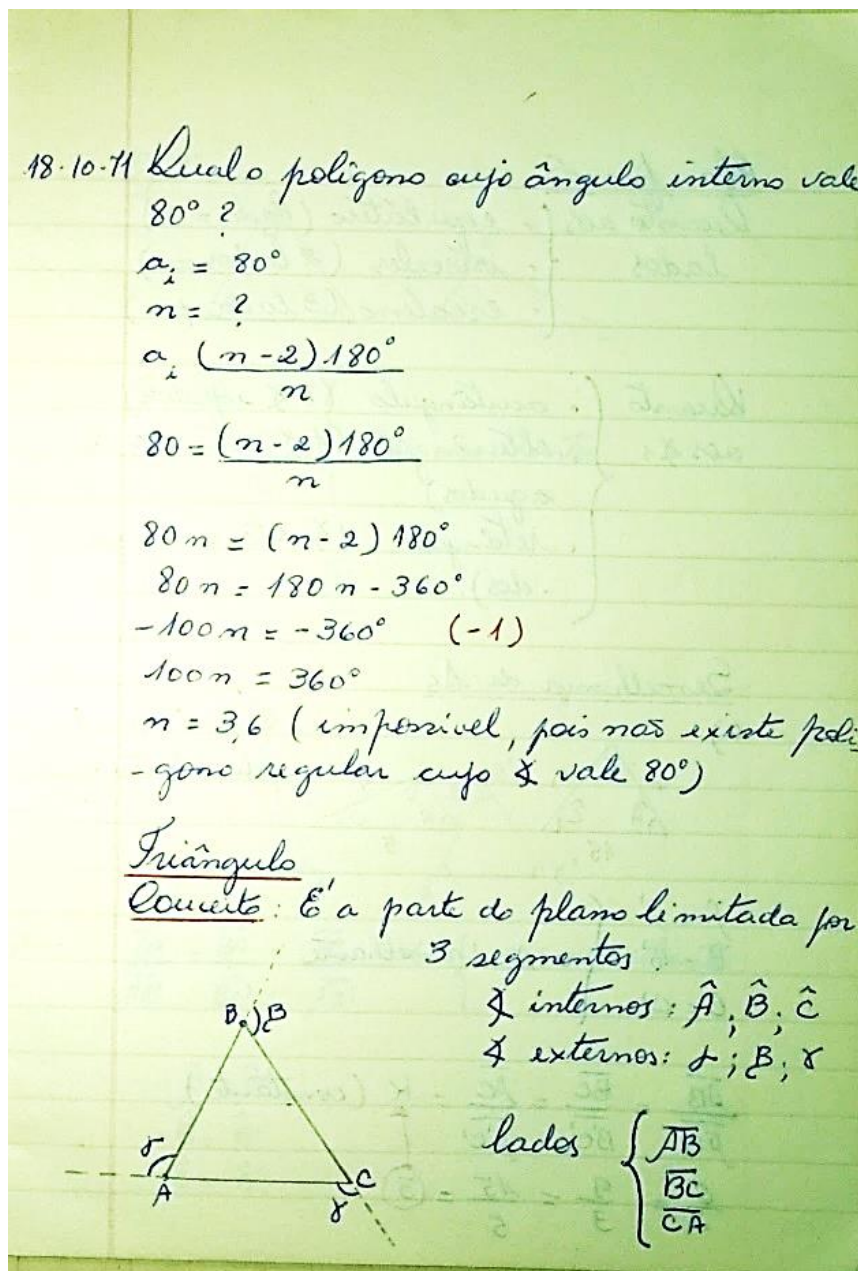 18-10-71 Qual o polígono cujo ângulo interno vale
80° ?
a_i = 80°
n = ?
a_i (n-2)180°
n
80 = (n-2)180°
n
80n = (n-2) 180°
80n = 180n - 360°
-100n = -360° (-1)
100n = 360°
n = 3,6 (impossível, pois não existe polí
-gono regular cujo ∡ vale 80°)
Triângulo
Conceito: É a parte do plano limitada por
3 segmentos.
∡ internos: Â; B̂; Ĉ
∡ externos: α; β; γ
B β
lados { AB
BC
CA
α
A
C
γ